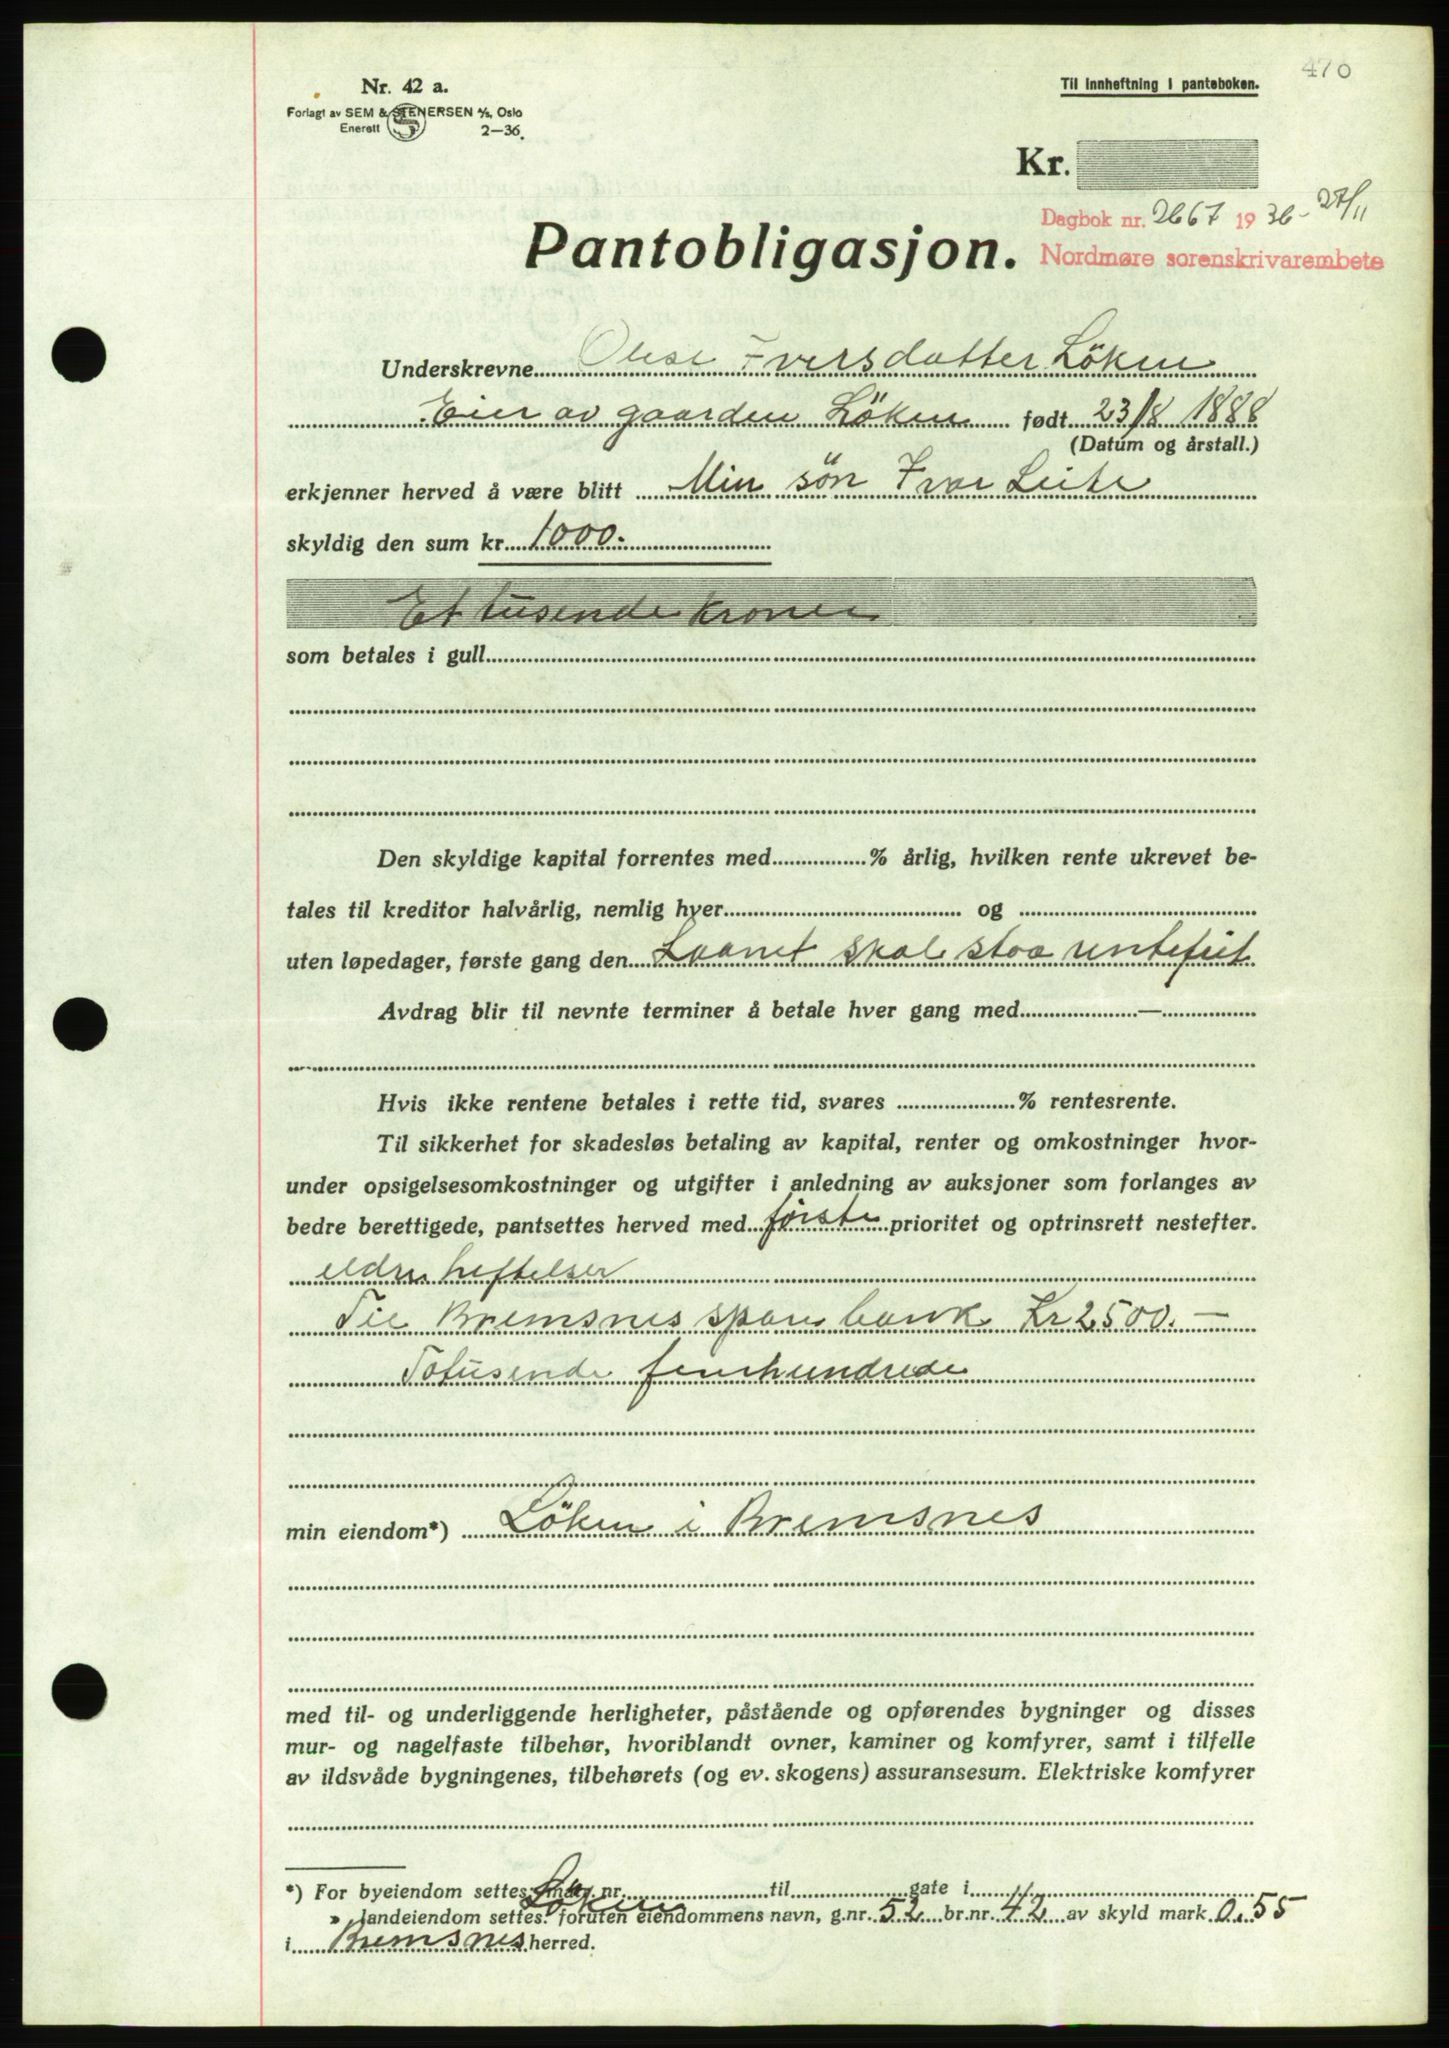 476
Nr. 42 a.
Til innheftning i panteboken.
Forlagt av SEM & STENERSEN A/S, Oslo
Enerett 2—36.
Kr.
Dagbok nr. 2667 1936 - 27/11
Nordmøre sorenskrivarembete
Pantobligasjon.
Underskrevne Iversdatter Löken
Eier av gaarden Löken født 23/8 1888
(Datum og årstall.)
erkjenner herved å være blitt Min sön Ivar Leite
skyldig den sum kr. 1000.
Et tusende kroner
som betales i gull
Den skyldige kapital forrentes med % årlig, hvilken rente ukrevet be-
tales til kreditor halvårlig, nemlig hver og
uten løpedager, første gang den Laanet skal staa rentefrit
Avdrag blir til nevnte terminer å betale hver gang med —
Hvis ikke rentene betales i rette tid, svares % rentesrente.
Til sikkerhet for skadesløs betaling av kapital, renter og omkostninger hvor-
under opsigelsesomkostninger og utgifter i anledning av auksjoner som forlanges av
bedre berettigede, pantsettes herved med förste prioritet og optrinsrett nestefter.
eldre heftelser
Til Bremsnes sparebank Kr 2500.—
Totusende femhundrede
min eiendom*) Löken i Bremsnes
med til- og underliggende herligheter, påstående og opførendes bygninger og disses
mur- og nagelfaste tilbehør, hvoriblandt ovner, kaminer og komfyrer, samt i tilfelle
av ildsvåde bygningenes, tilbehørets (og ev. skogens) assuransesum. Elektriske komfyrer
*) For byeiendom settes: matr. nr. til gate i
» landeiendom settes: foruten eiendommens navn, Löken g.nr. 52 br.nr. 42 av skyld mark 0.55
i Bremsnes herred.